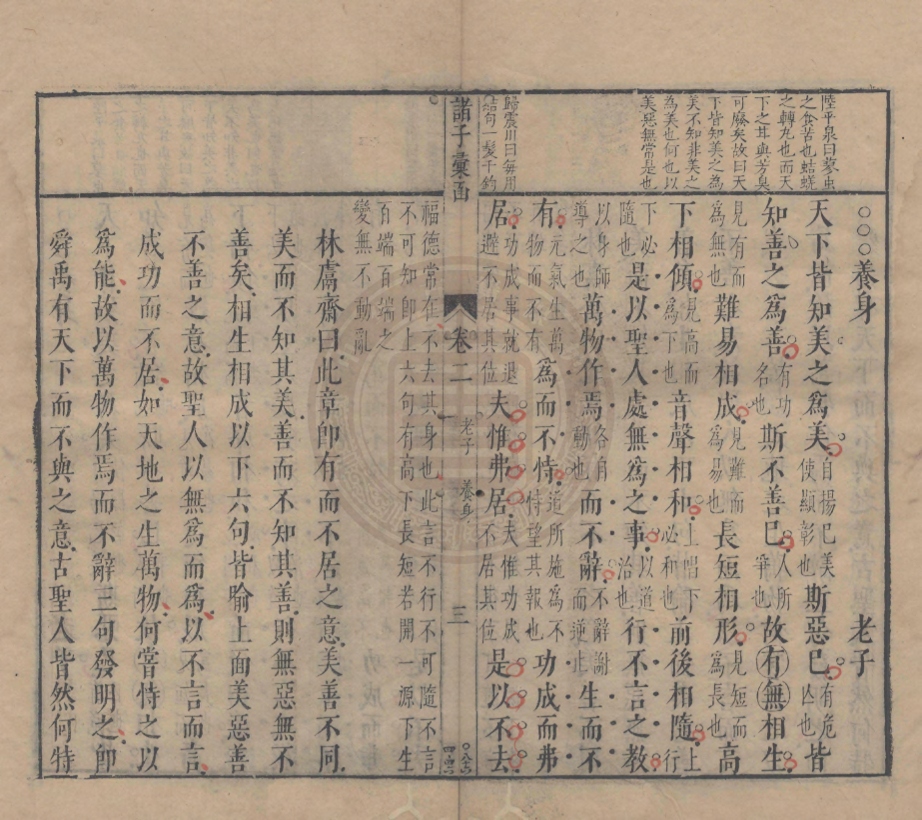 陸平泉曰蓼虫
之食苦也蛣蜣
之轉丸也而天
下之耳與芳臭
可廢矣故曰天
下皆知美之為
美不知非美之
為美也何也以
美惡無常是也
歸震川曰每用
結句一髮千鈞
○○○養身 老子
天下皆知美之爲美自揚已美使顯彰也斯惡已有危亾也皆
知善之爲善有功名也斯不善已人所爭也故有無相生
見有而爲無也難易相成見難而爲易也長短相形見短而爲長也高
下相傾見高而爲下也音聲相和上唱下必和也前後相隨上行
下必隨也是以聖人處無爲之事以道治也行不言之教
以身師導之也萬物作焉各自動也而不辭不辭謝而逆止生而不
有元氣生萬物而不有爲而不恃道所施爲不恃望其報也功成而弗
居功成事就退避不居其位夫惟弗居夫惟功成不居其位是以不去
諸子彙函 卷二 老子 養身 三
福德常在不去其身也此言不行不可隨不言
不可知卽上六句有高下長短若開一源下生
百端百端之
變無不動亂
林鬳齋曰此章卽有而不居之意美善不同
美而不知其美善而不知其善則無惡無不
善矣相生相成以下六句皆喻上面美惡善
不善之意故聖人以無爲而爲以不言而言
成功而不居如天地之生萬物何甞恃之以
爲能故以萬物作焉而不辭三句發明之卽
舜禹有天下而不與之意古聖人皆然何特